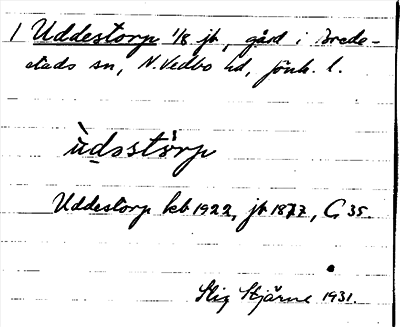 1 Uddestorp 1/8 jb, gård i Brede-
stads sn, N. Vedbo hd, jönk. l.
ùdǝstórp
Uddestorp kb 1922, jb 1877, G 35.
Stig Hjärne 1931.